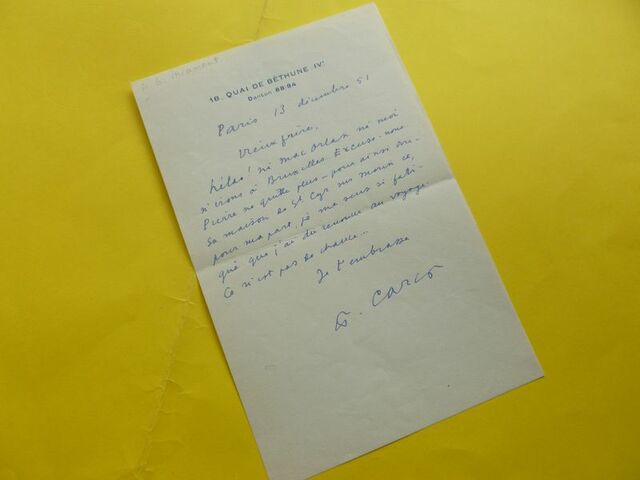 18, QUAI DE BÉTHUNE IVᵉ
DANTON 88-94
Paris 13 décembre 51
Vieux frère,
hélas! ni Mac Orlan ni moi
n'irons à Bruxelles. Excuse-nous
Pierre ne quitte plus – pour ainsi dire –
sa maison de St Cyr sur Morin et,
pour ma part, je me sens si fati-
gué que j'ai dû renoncer au voyage.
Ce n'est pas de chance...
Je t'embrasse
F. Carco